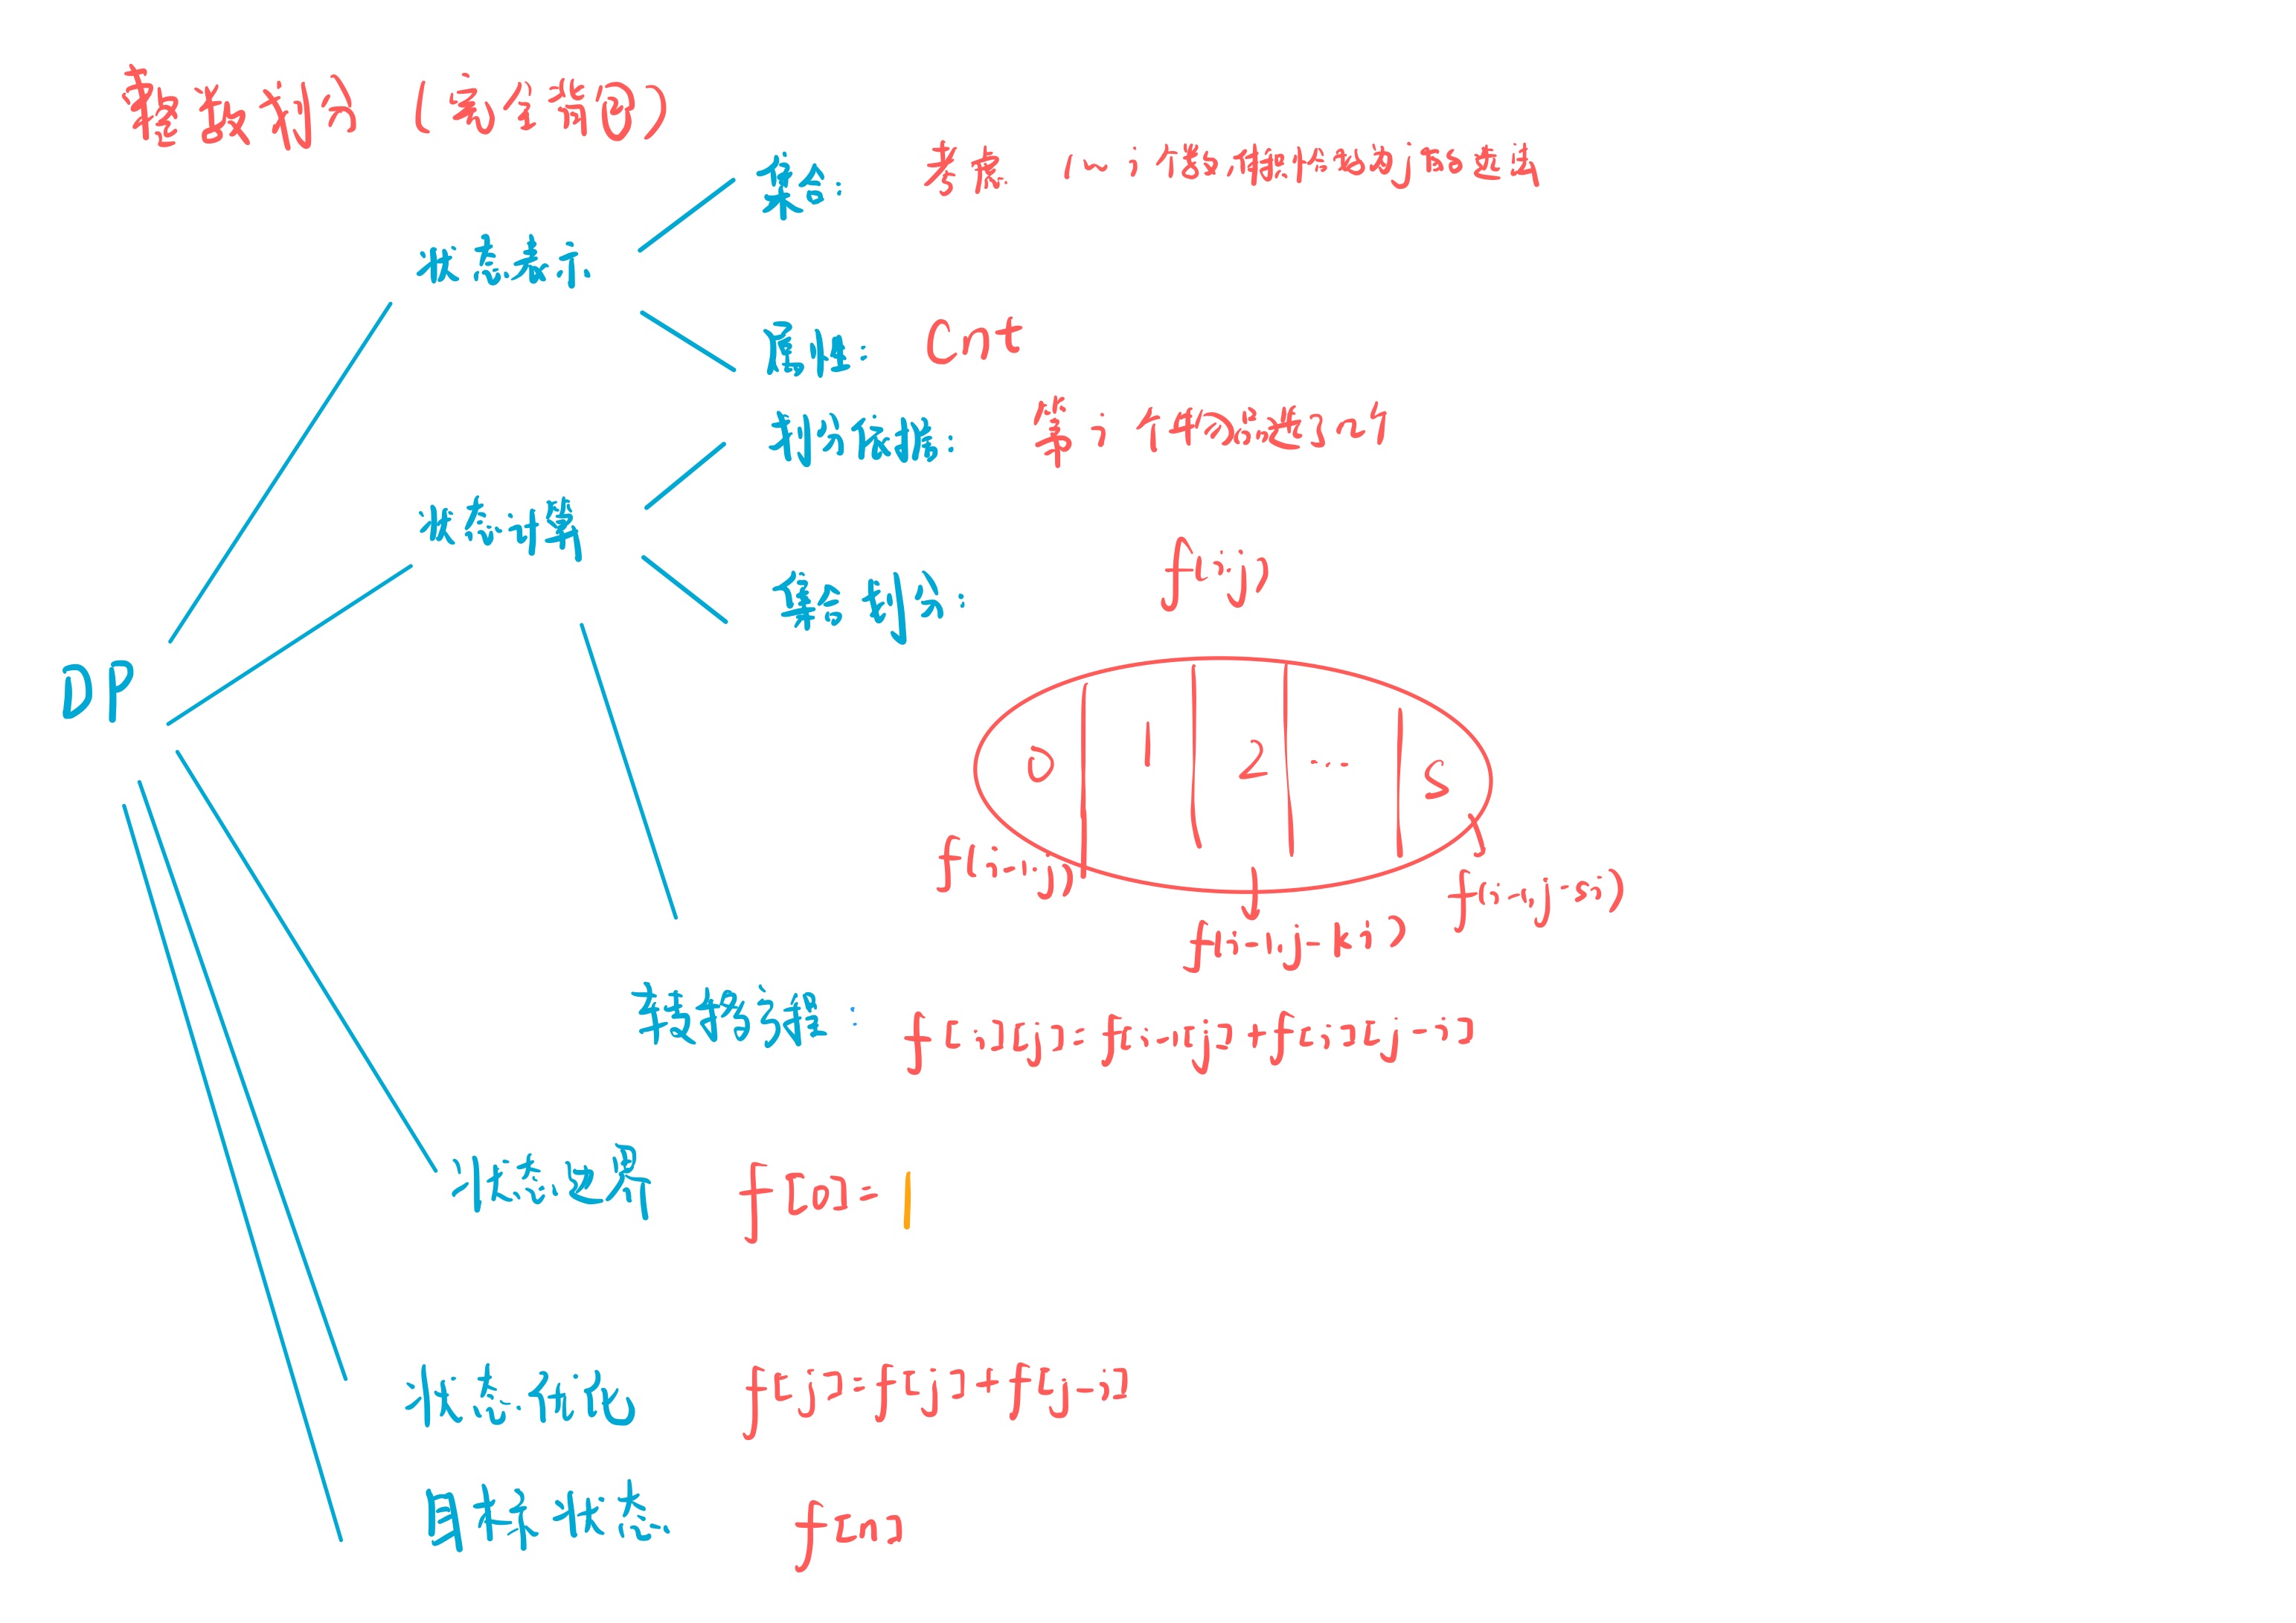 整数划分 (完全背包)
集合: 考虑 1~i个数,体积恰好为j的选法
状态表示
属性: Cnt
划分依据: 第i个物品选了几个
状态计算
集合划分: f(i,j)
DP
0 1 2 ... s
f(i-1,j)
f(i-1,j-ki)
f(i-1,j-si)
转移方程: f[i][j]=f[i-1][j]+f[i][j-i]
状态边界 f[0]=1
状态优化 f[j]=f[j]+f[j-i]
目标状态 f[n]